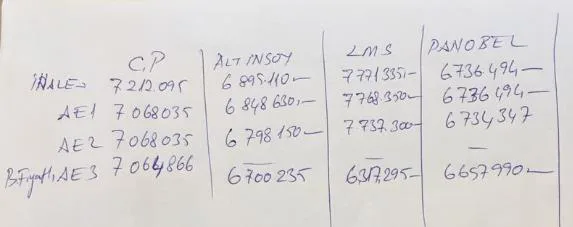 C.P ALTINSOY LMS PANOBEL
İHALE 7 212.095 6 895.110.— 7 771 335.— 6736.494—
AE1 7 068035 6 848 630.— 7768.350— 6736494—
AE2 7 068035 6 798 150— 7 737.300— 6734,347
— — —
B.Fiyatlı, AE3 7 064866 6700 235 6,317,295— 6657990—